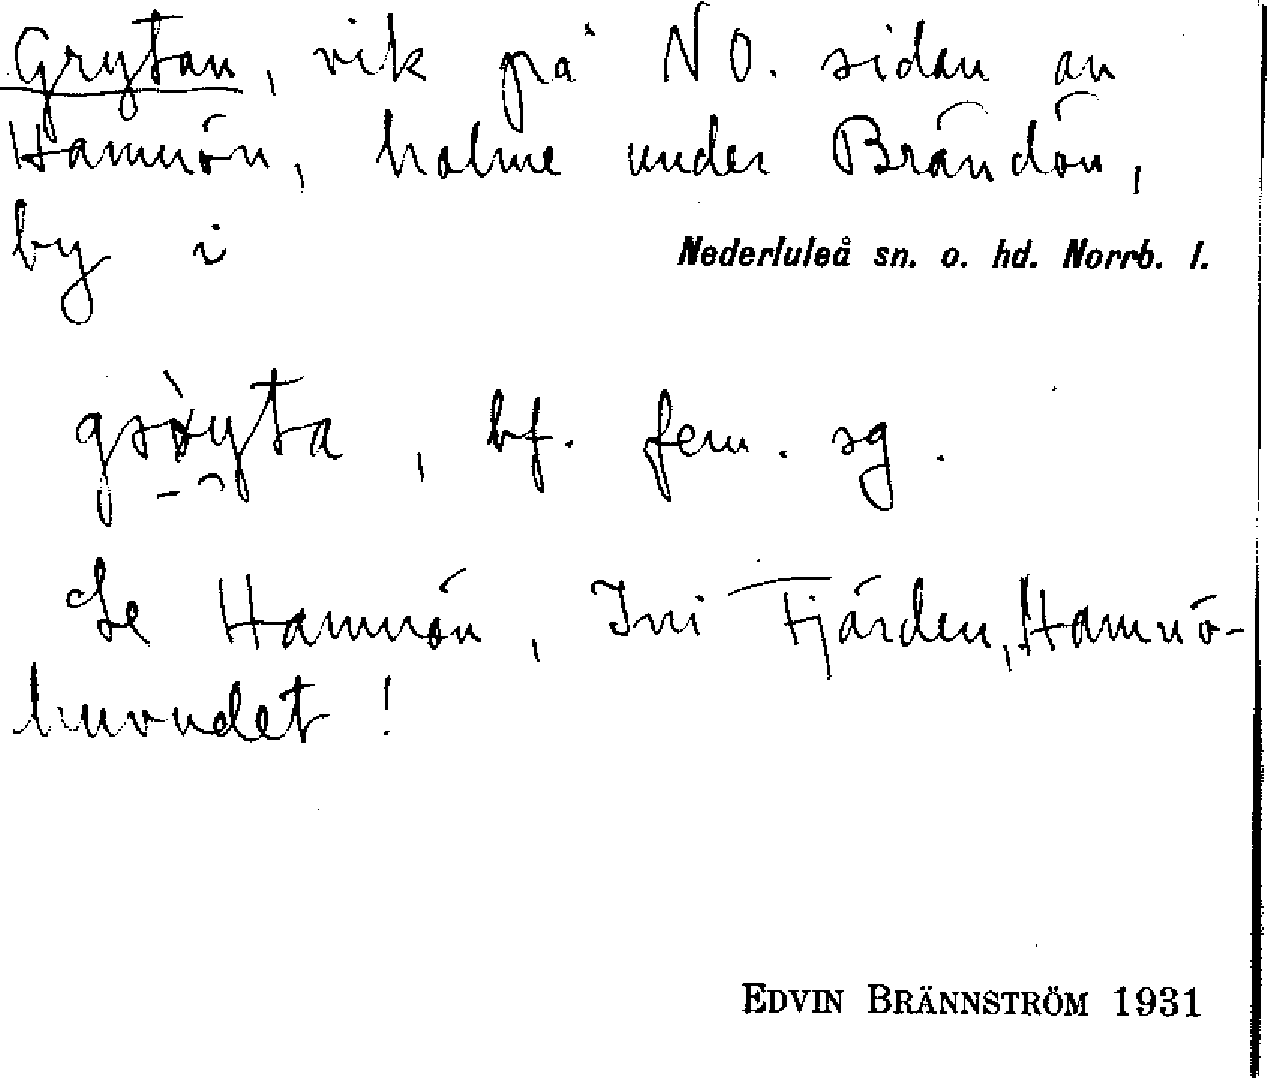 Grytan, vik på NO. sidan av
Hamnön, holme under Brändön,
by i Nederluleå sn. o. hd. Norrb. l.
bf. fem. sg.
Se Hamnön, Ini Fjärden, Hamnö-
huvudet!
EDVIN BRÄNNSTRÖM 1931